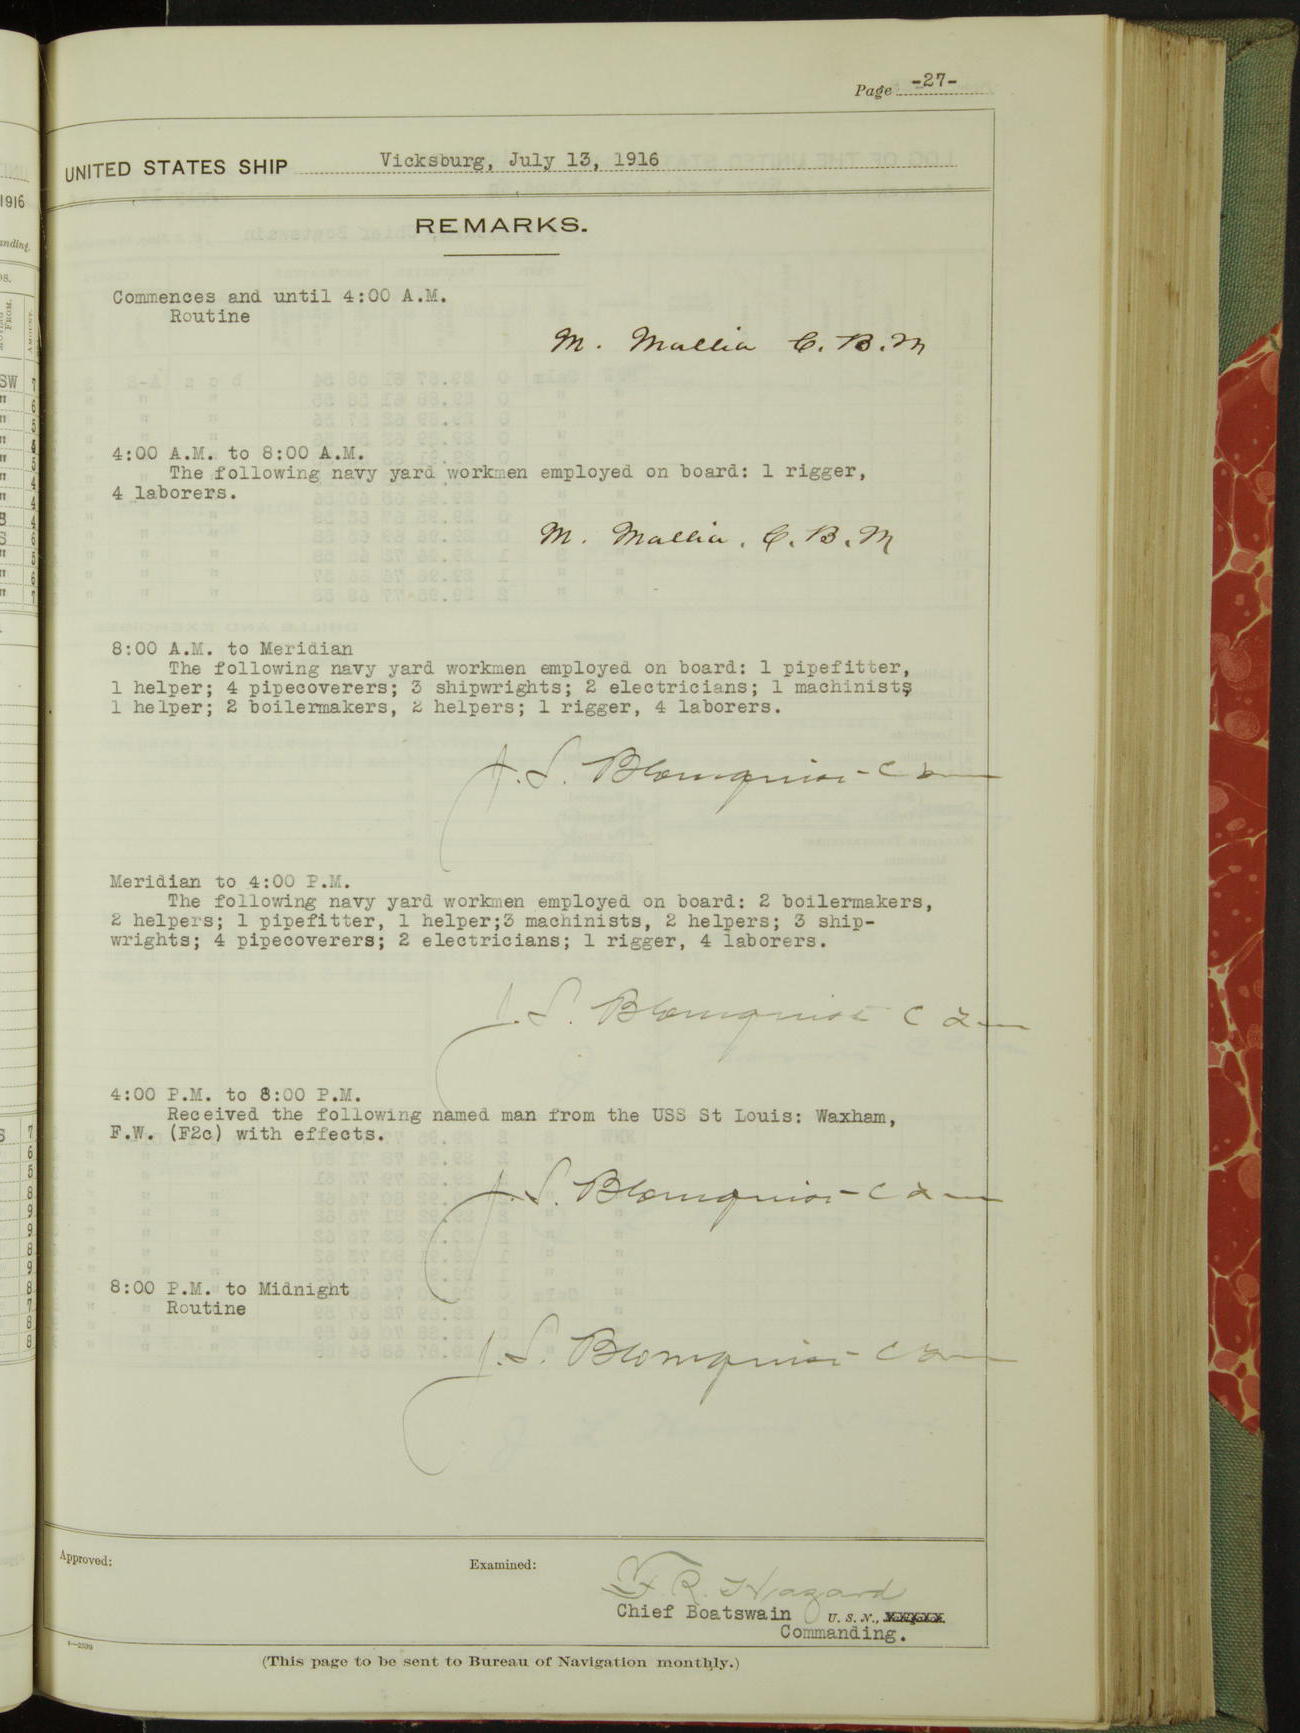 Page -27-
UNITED STATES SHIP Vicksburg, July 13, 1916
REMARKS.
Commences and until 4:00 A.M.
Routine
M. Mallia C.B.M
4:00 A.M. to 8:00 A.M.
The following navy yard workmen employed on board: 1 rigger,
4 laborers.
M. Mallia. C.B.M
8:00 A.M. to Meridian
The following navy yard workmen employed on board: 1 pipefitter,
1 helper; 4 pipecoverers; 3 shipwrights; 2 electricians; 1 machinist;
1 helper; 2 boilermakers, 2 helpers; 1 rigger, 4 laborers.
J.S. Blomquist
Meridian to 4:00 P.M.
The following navy yard workmen employed on board: 2 boilermakers,
2 helpers; 1 pipefitter, 1 helper;3 machinists, 2 helpers; 3 ship-
wrights; 4 pipecoverers; 2 electricians; 1 rigger, 4 laborers.
J.S. Blomquist
4:00 P.M. to 8:00 P.M.
Received the following named man from the USS St Louis: Waxham,
F.W. (F2c) with effects.
J.S. Blomquist
8:00 P.M. to Midnight
Routine
J.S. Blomquist
Approved:
Examined:
F.R. Hazard
Chief Boatswain U. S. N.,
Commanding.
(This page to be sent to Bureau of Navigation monthly.)